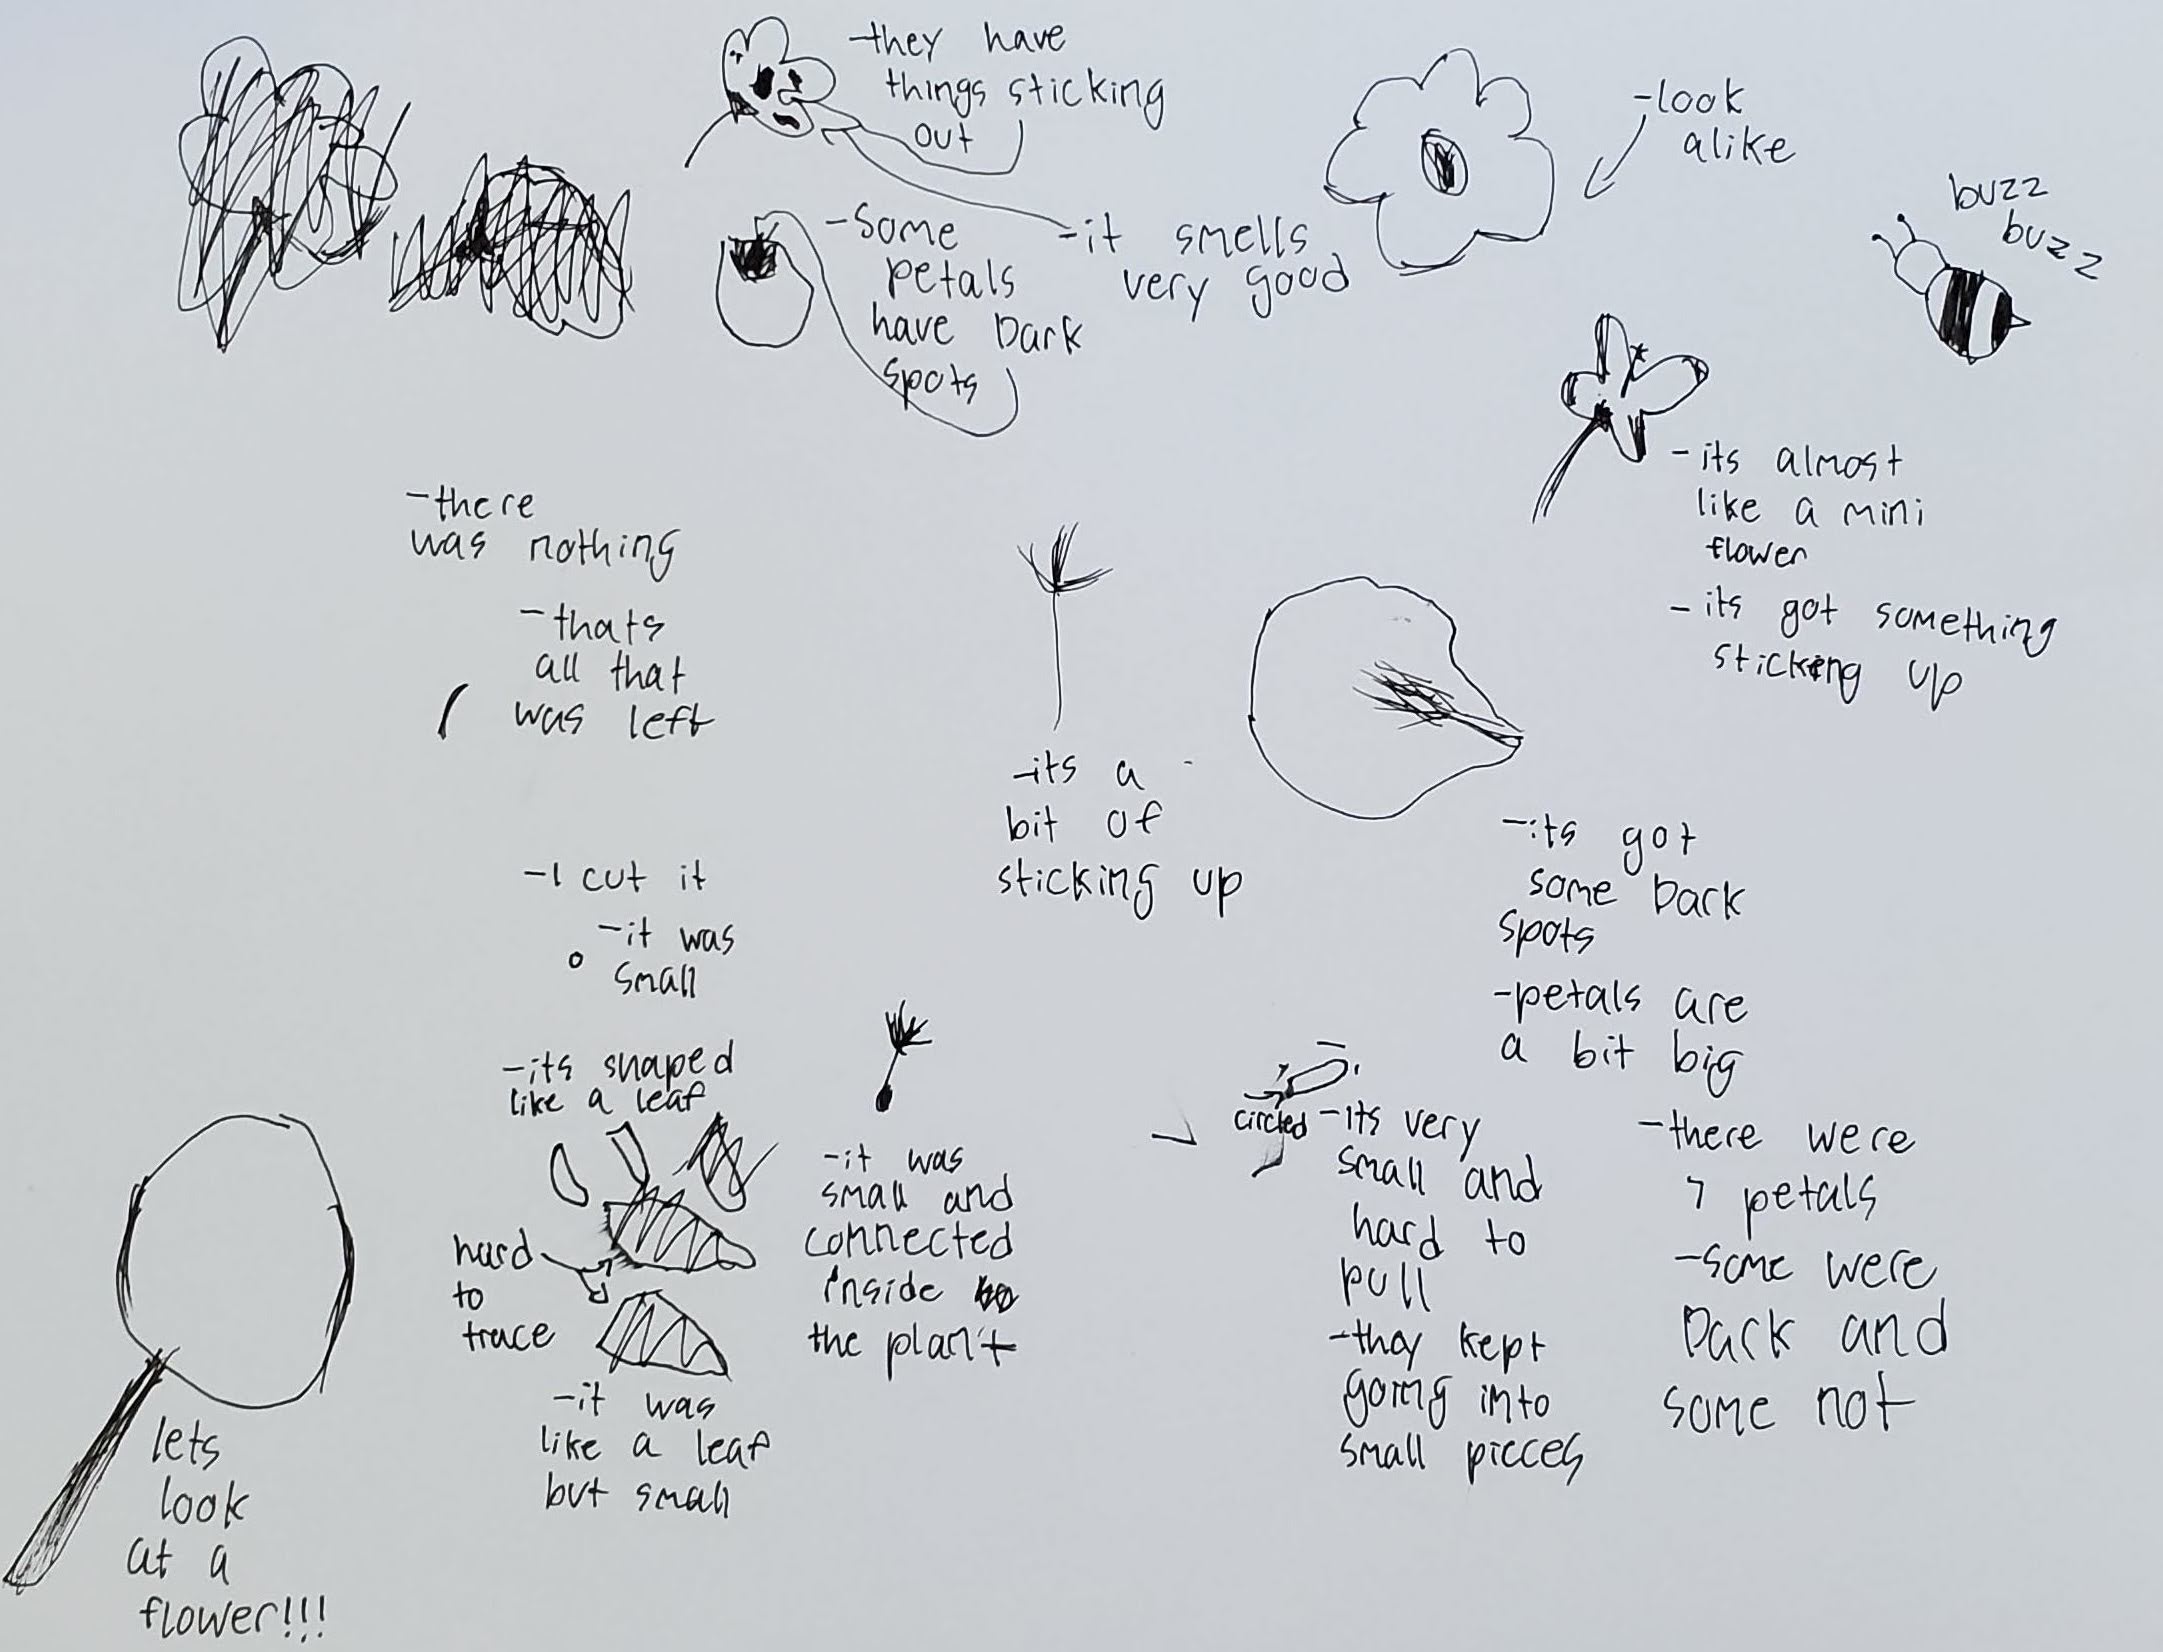 -they have
things sticking
out
-look
alike
buzz
buzz
-some
petals
have Dark
spots
-it smells
very good
-its almost
like a mini
flower
-its got something
sticking up
-there
was nothing
-thats
all that
was left
-its a
bit of
sticking up
-its got
some Dark
spots
-petals are
a bit big
-I cut it
-it was
small
-its shaped
like a leaf
hard
to
trace
-it was
like a leaf
but small
-it was
small and
connected
inside
the plant
circled
-its very
small and
hard to
pull
-they kept
going into
small pieces
-there were
7 petals
-some were
Dark and
some not
lets
look
at a
flower!!!